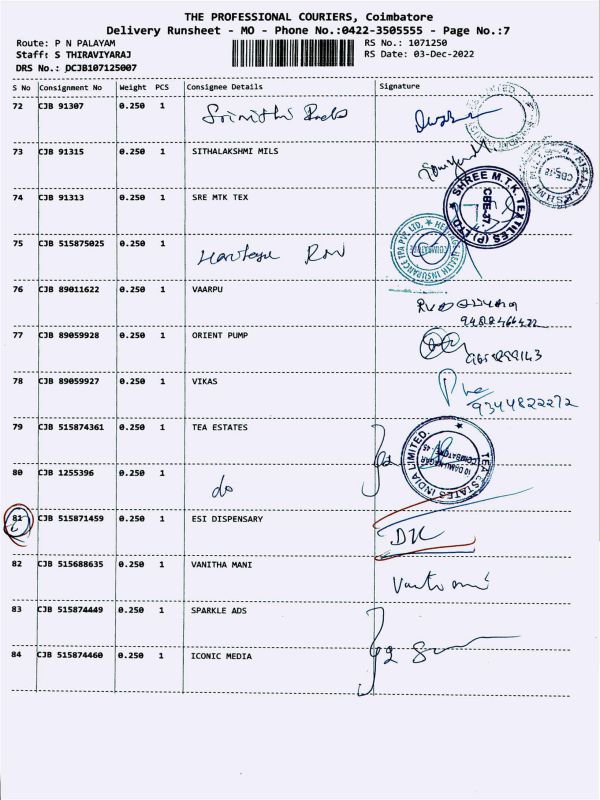 THE PROFESSIONAL COURIERS, Coimbatore
Delivery Runsheet - MO - Phone No.:0422-3505555 - Page No.:7
Route: P N PALAYAM RS No.: 1071250
Staff: S THIRAVIYARAJ RS Date: 03-Dec-2022
DRS No.: DCJB107125007
S No Consignment No Weight PCS Consignee Details Signature
72 CJB 91307 0.250 1
73 CJB 91315 0.250 1 SITHALAKSHMI MILS
74 CJB 91313 0.250 1 SRE MTK TEX
SHREE M.T.K. TEXTILES (P) LTD. CBE-37.
75 CJB 515875025 0.250 1
HERITAGE HEALTH INSURANCE TPA PVT LTD. COIMBATORE
76 CJB 89011622 0.250 1 VAARPU
77 CJB 89059928 0.250 1 ORIENT PUMP
78 CJB 89059927 0.250 1 VIKAS
9344822272
79 CJB 515874361 0.250 1 TEA ESTATES
TEA ESTATES INDIA LIMITED. COIMBATORE 45
80 CJB 1255396 0.250 1 do
81 CJB 515871459 0.250 1 ESI DISPENSARY
82 CJB 515688635 0.250 1 VANITHA MANI
83 CJB 515874449 0.250 1 SPARKLE ADS
84 CJB 515874460 0.250 1 ICONIC MEDIA